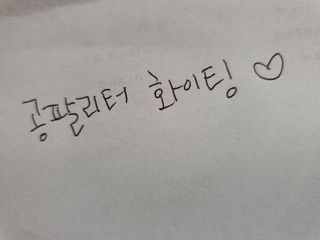 공팔리터 화이팅 ♡